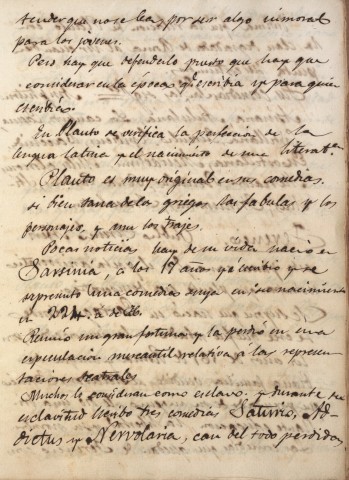 tender que no se lea, por ser algo inmoral
para los jóvenes.
Pero hay que defenderlo puesto que hay que
considerar en la época qe escribia y para quien
escribía.
En Plauto se verifica la perfeccion de la
lengua latina y el nacimiento de una literatra
Plauto es muy original en sus comedias,
si bien toma de los griegos las fabulas y los
personajes, y aun los trajes.
Pocas noticias hay de su vida nacio en
Sarsinia, a los 17 años ya escribio y se
represento una comedia suya en su nacimiento
en 224 a. de
Reunio un gran fortuna y la perdio en una
especulacion mercantil relativa a las represen-
taciones teatrales.
Muchos le consideran como esclavo, y durante su
esclavitud escribio tres comedias Saturio, Ad-
dictus y Nervolaria, casi del todo perdidas